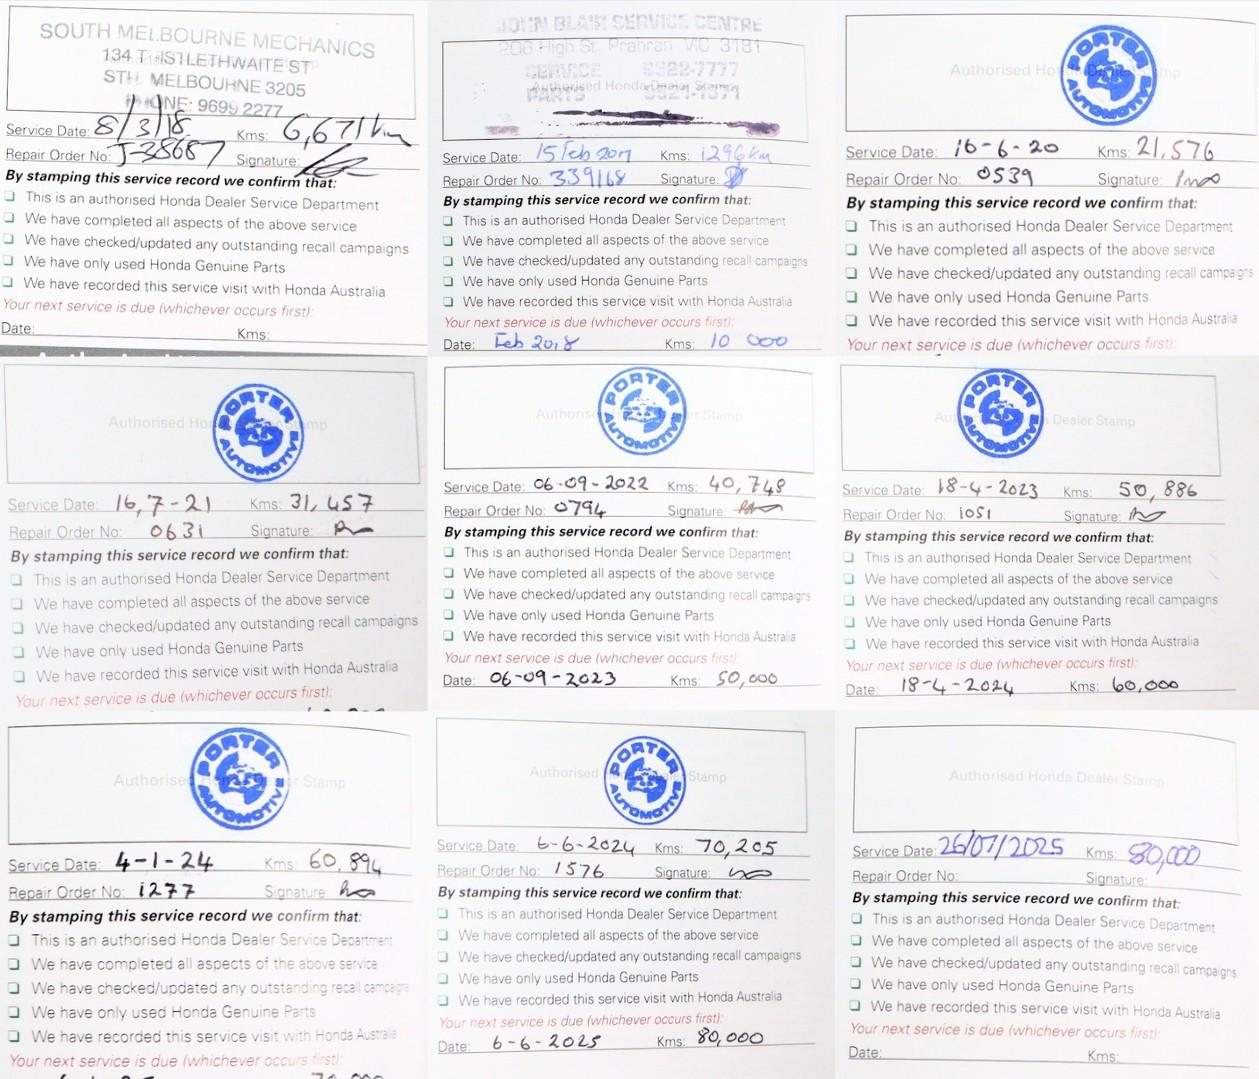 SOUTH MELBOURNE MECHANICS
134 T ISTLETHWAITE ST
STH MELBOURNE 3205
PHONE: 9699 2277
Service Date: 8/3/18 Kms: 6,671km
Repair Order No: J-38687 Signature:
By stamping this service record we confirm that:
This is an authorised Honda Dealer Service Department
We have completed all aspects of the above service
We have checked/updated any outstanding recall campaigns
We have only used Honda Genuine Parts
We have recorded this service visit with Honda Australia
Your next service is due (whichever occurs first):
Date: Kms:
JOHN BLAIR SERVICE CENTRE
206 High St. Prahran VIC 3181
SERVICE 9522-7777
Authorised Honda Dealer Stamp
PARTS 9521-1371
Service Date: 15 Feb 2017 Kms: 1296km
Repair Order No: 339168 Signature:
By stamping this service record we confirm that:
This is an authorised Honda Dealer Service Department
We have completed all aspects of the above service
We have checked/updated any outstanding recall campaigns
We have only used Honda Genuine Parts
We have recorded this service visit with Honda Australia
Your next service is due (whichever occurs first):
Date: Feb 2018 Kms: 10 000
PORTER AUTOMOTIVE
Authorised Honda Dealer Stamp
Service Date: 16-6-20 Kms: 21,576
Repair Order No: 0539 Signature:
By stamping this service record we confirm that:
This is an authorised Honda Dealer Service Department
We have completed all aspects of the above service
We have checked/updated any outstanding recall campaigns
We have only used Honda Genuine Parts
We have recorded this service visit with Honda Australia
Your next service is due (whichever occurs first):
PORTER AUTOMOTIVE
Authorised Honda Dealer Stamp
Service Date: 16,7-21 Kms: 31,457
Repair Order No: 0631 Signature:
By stamping this service record we confirm that:
This is an authorised Honda Dealer Service Department
We have completed all aspects of the above service
We have checked/updated any outstanding recall campaigns
We have only used Honda Genuine Parts
We have recorded this service visit with Honda Australia
Your next service is due (whichever occurs first):
PORTER AUTOMOTIVE
Authorised Honda Dealer Stamp
Service Date: 06-09-2022 Kms: 40,748
Repair Order No: 0794 Signature:
By stamping this service record we confirm that:
This is an authorised Honda Dealer Service Department
We have completed all aspects of the above service
We have checked/updated any outstanding recall campaigns
We have only used Honda Genuine Parts
We have recorded this service visit with Honda Australia
Your next service is due (whichever occurs first):
Date: 06-09-2023 Kms: 50,000
PORTER AUTOMOTIVE
Authorised Honda Dealer Stamp
Service Date: 18-4-2023 Kms: 50,886
Repair Order No: 1051 Signature:
By stamping this service record we confirm that:
This is an authorised Honda Dealer Service Department
We have completed all aspects of the above service
We have checked/updated any outstanding recall campaigns
We have only used Honda Genuine Parts
We have recorded this service visit with Honda Australia
Your next service is due (whichever occurs first):
Date: 18-4-2024 Kms: 60,000
PORTER AUTOMOTIVE
Authorised Honda Dealer Stamp
Service Date: 4-1-24 Kms: 60,894
Repair Order No: 1277 Signature:
By stamping this service record we confirm that:
This is an authorised Honda Dealer Service Department
We have completed all aspects of the above service
We have checked/updated any outstanding recall campaigns
We have only used Honda Genuine Parts
We have recorded this service visit with Honda Australia
Your next service is due (whichever occurs first):
PORTER AUTOMOTIVE
Authorised Honda Dealer Stamp
Service Date: 6-6-2024 Kms: 70,205
Repair Order No: 1576 Signature:
By stamping this service record we confirm that:
This is an authorised Honda Dealer Service Department
We have completed all aspects of the above service
We have checked/updated any outstanding recall campaigns
We have only used Honda Genuine Parts
We have recorded this service visit with Honda Australia
Your next service is due (whichever occurs first):
Date: 6-6-2025 Kms: 80,000
Authorised Honda Dealer Stamp
Service Date: 26/07/2025 Kms: 80,000
Repair Order No: Signature:
By stamping this service record we confirm that:
This is an authorised Honda Dealer Service Department
We have completed all aspects of the above service
We have checked/updated any outstanding recall campaigns
We have only used Honda Genuine Parts
We have recorded this service visit with Honda Australia
Your next service is due (whichever occurs first):
Date: Kms: